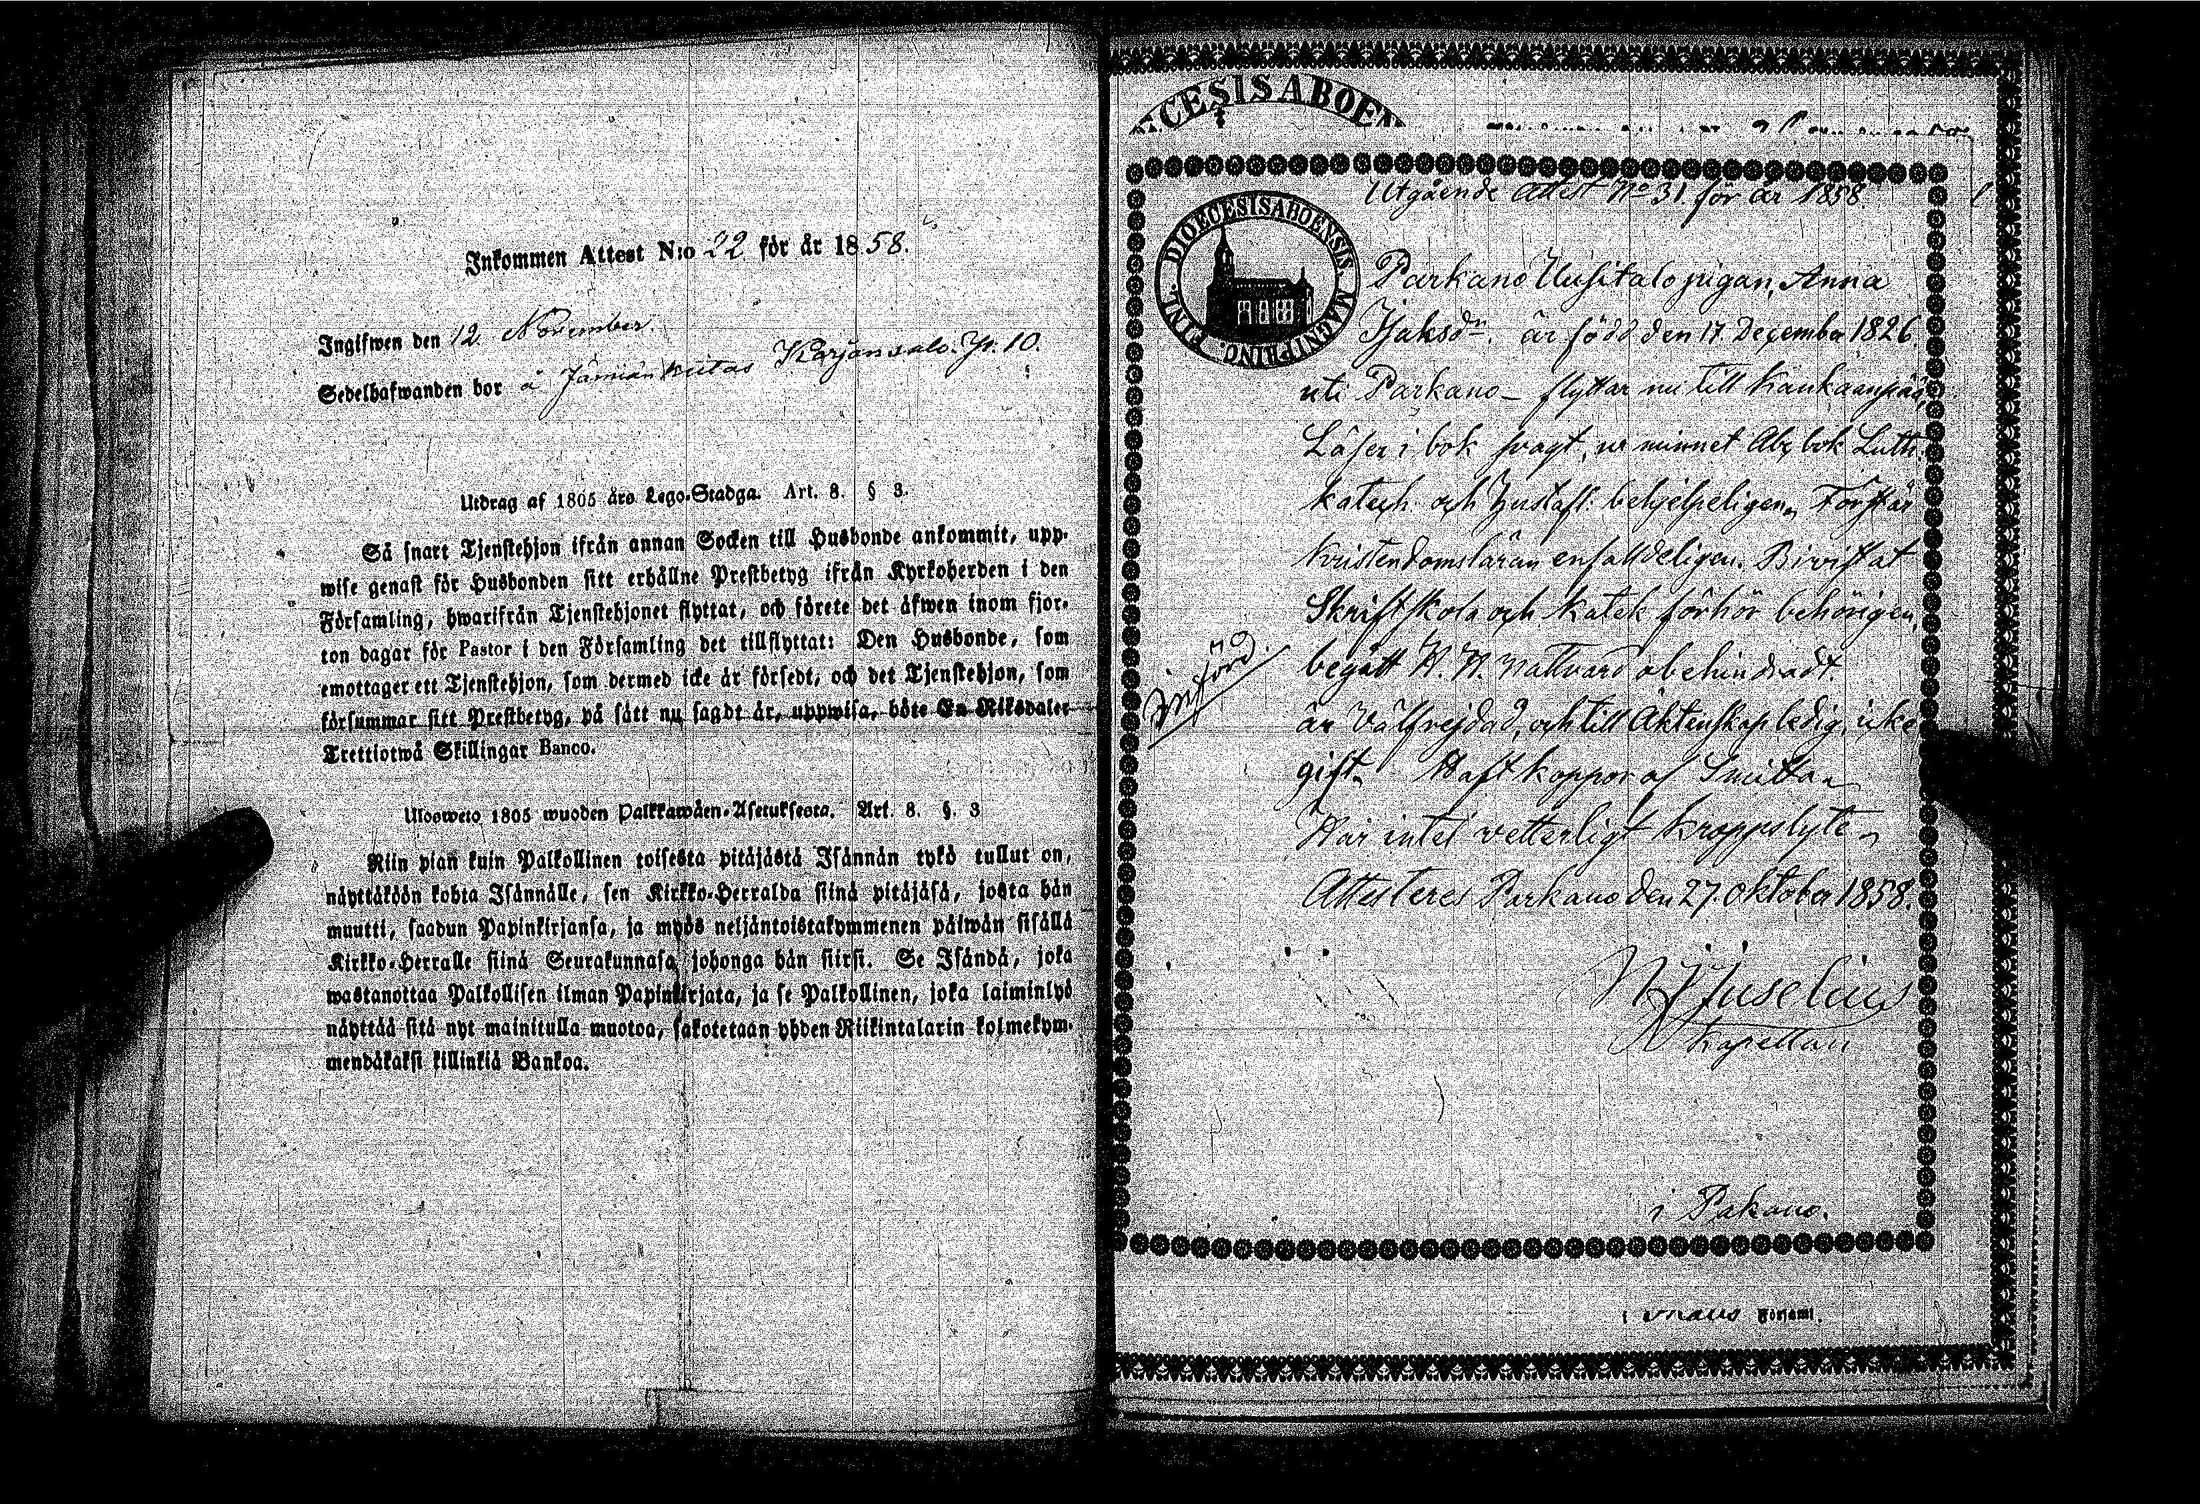 Inkommen Attest N:o 22 för år 1858.
Ingifwen den 12 November
Sedelhafwanden bor å Jämiänkeitas Karjansalo. Yt. 10.
Utdrag af 1805 års Lego-Stadga. Art. 8. § 3.
Så snart Tjenstehjon ifrån annan Socken till Husbonde ankommit, upp-
wise genast för Husbonden sitt erhållne Prestbetyg ifrån Kyrkoherden i den
Församling, hwarifrån Tjenstehjonet flyttat, och förete det äfwen inom fjor-
ton dagar för Pastor i den Församling det tillflyttat: Den Husbonde, som
emottager ett Tjenstehjon, som dermed icke är försedt, och det Tjenstehjon, som
försummar sitt Prestbetyg, på sätt nu sagdt är, uppwisa, böte En Riksdaler
Trettiotwå Skillingar Banco.
Ulosweto 1805 wuoden Palkkawäen-Asetuksesta. Art. 8. §. 3
Niin pian kuin Palkollinen toisesta pitäjästä Isännän tykö tullut on,
näyttäköön kohta Isännälle, sen Kirkko-Herralda siinä pitäjäsä, josta hän
muutti, saadun Papinkirjansa, ja myös neljäntoistakymmenen päiwän sisällä
Kirkko-Herralle siinä Seurakunnasa johonga hän siirsi. Se Isändä, joka
wastanottaa Palkollisen ilman Papinkirjata, ja se Palkollinen, joka laiminlyö
näyttää sitä nyt mainitulla muotoa, sakotetaan yhden Riikintalarin kolmekym-
mendäkaksi killinkiä Bankoa.
ŒCESISABOEN
Utgående Attest No 31. för år 1858.
DIOECESISABOENSIS. MAGNI PRINC. FINL.
Parkano Uusitalo pigan, Anna
Isaksdr. är född den 17. December 1826
uti Parkano – flyttar nu till Kankaanpää,
Läser i bok svagt, ur minnet Abc bok Luth.
katech. och Hustafl. behjelpeligen, Förstår
Kristendomsläran enfaldeligen. Bivistat
Skriftskola och katek förhör behörigen,
begått H. H. nattvard obehindradt.
införd.
är Välfrejdad, och till Äktenskap ledig, icke
gift. Haft koppor af Smitta
Har intet vetterligt kroppslyte
Attesteres Parkano den 27. Oktober 1858.
Juselius
Kapellan
i Pakano.
i Församl.